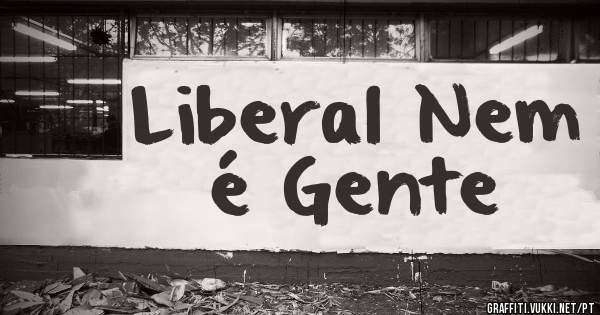 Liberal Nem
é Gente
GRAFFITI.VUKKI.NET/PT